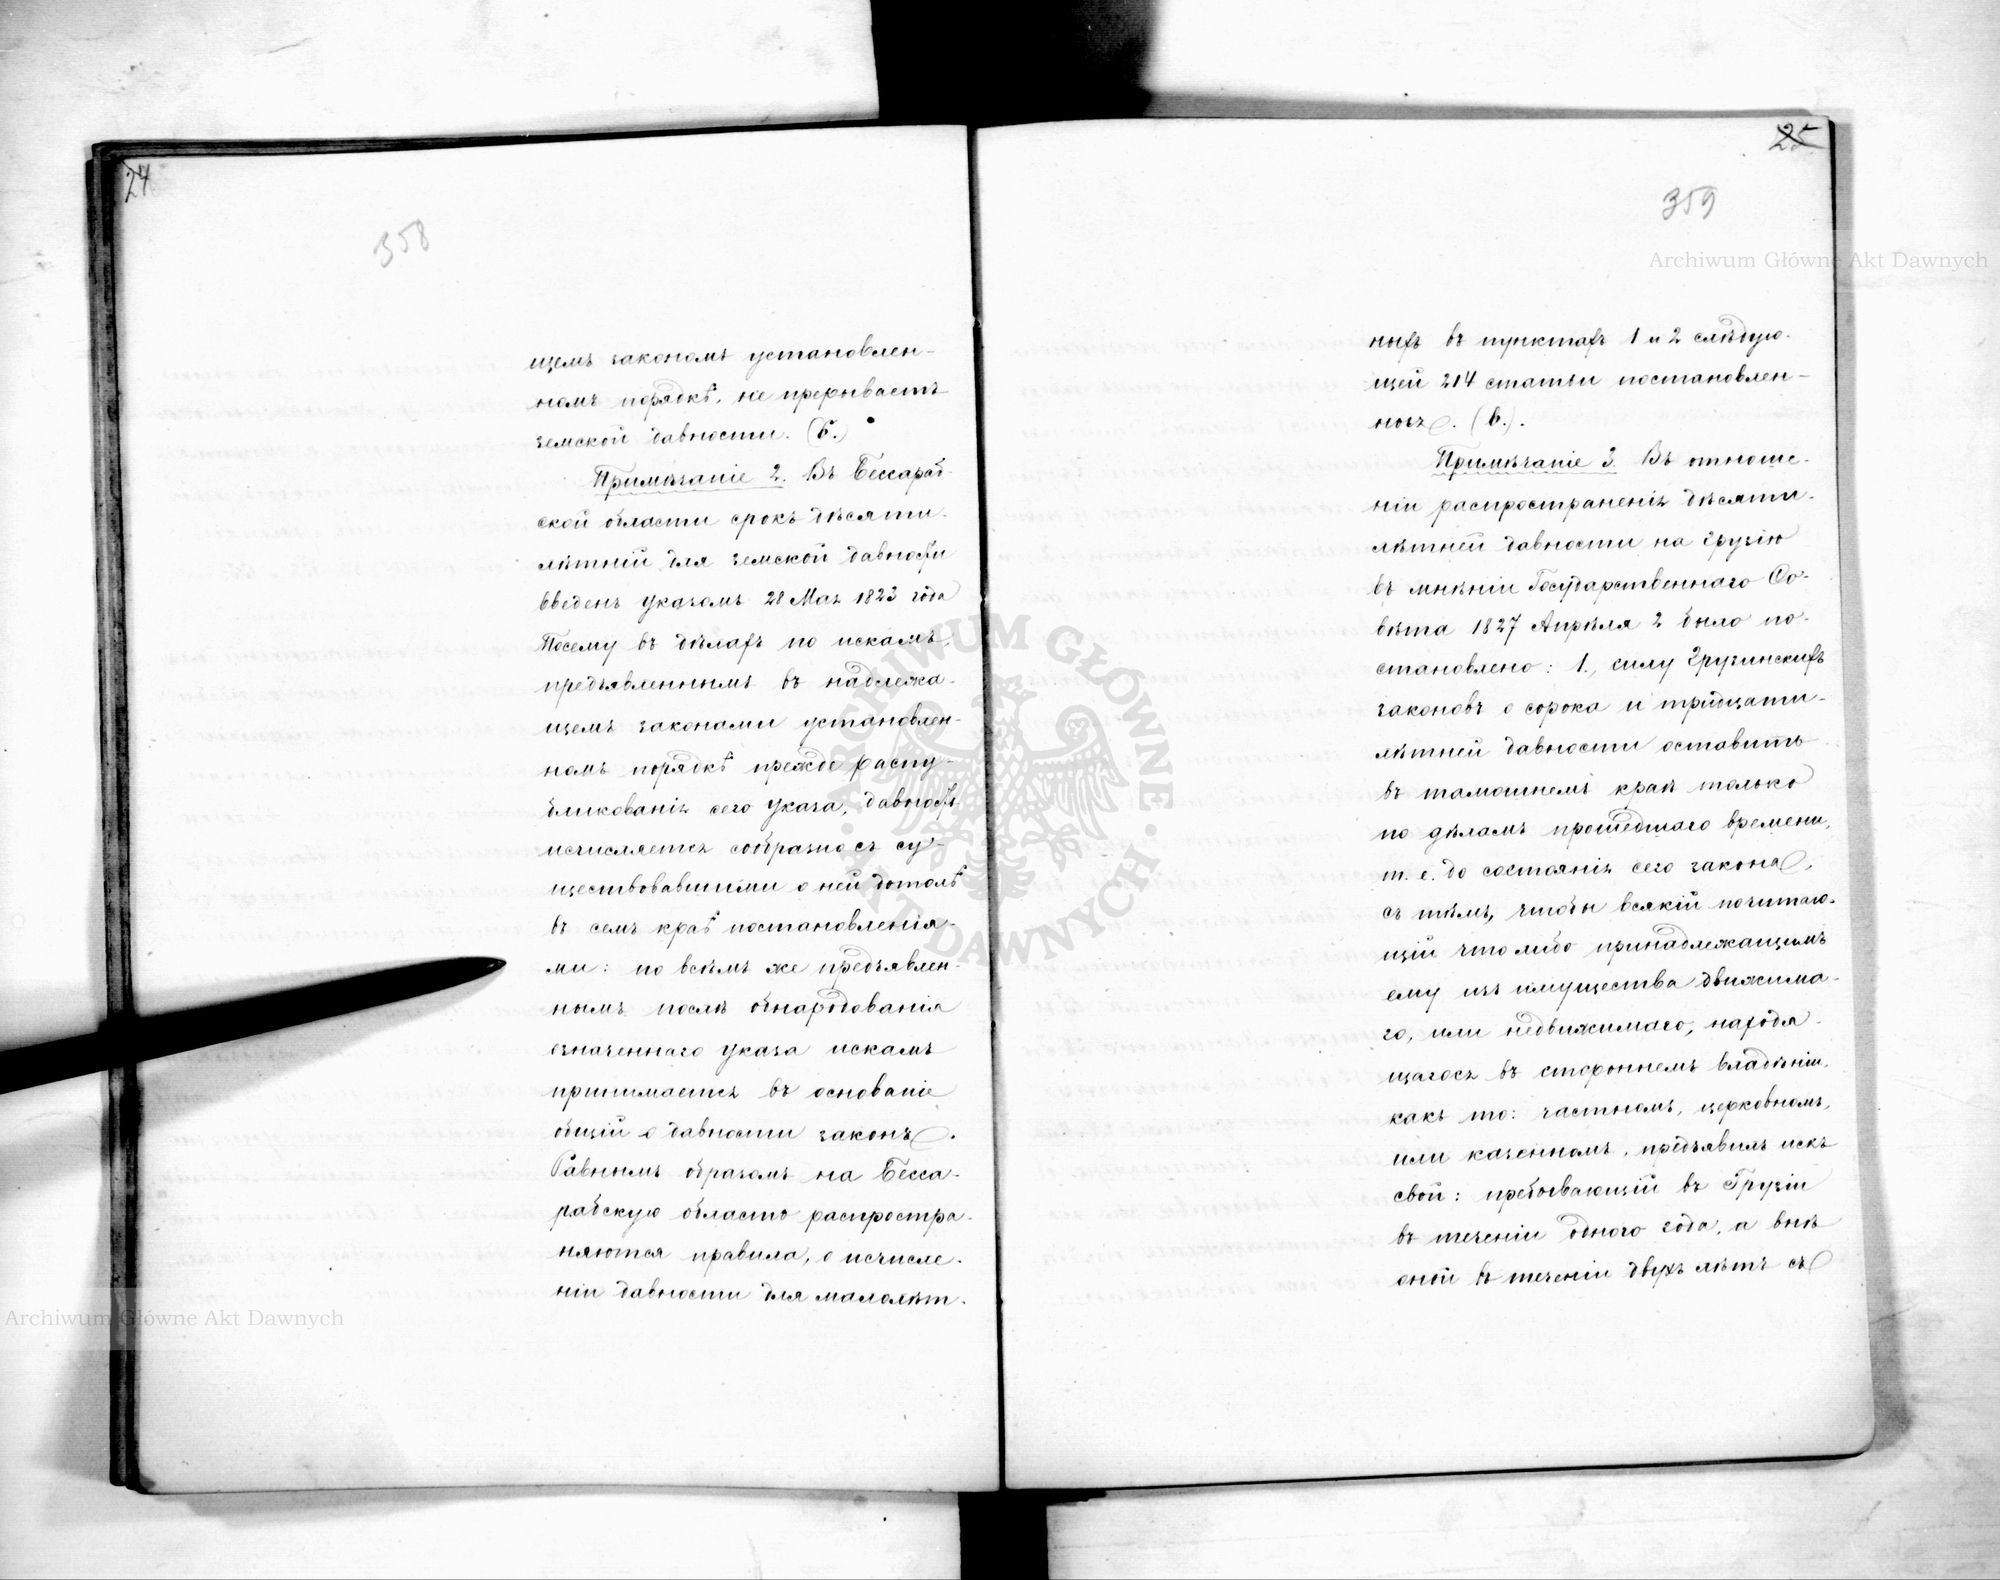 24
358
щемъ закономъ установлен-
номъ порядкѣ, не прерываетъ
земской давности. (б.)
Примѣчаніе 2. Въ Бессараб-
ской области срокъ десяти-
лѣтній для земской давности
введенъ указомъ 28 Мая 1823 года
Посему въ дѣлахъ по искамъ,
предъявленнымъ въ надлежа-
щемъ законами установлен-
номъ порядкѣ прежде распу-
бликованія сего указа, давность
исчисляется сообразно съ су-
ществовавшими о ней дотолѣ
въ семъ краѣ постановленія-
ми: по всѣмъ же предъявлен-
нымъ послѣ обнародованія
означеннаго указа искамъ
принимается въ основаніе
общій о давности законъ.
Равнымъ образомъ на Бесса-
рабскую область распростра-
няются правила, о исчисле-
ніи давности для малолѣт-
25
359
ныхъ въ пунктахъ 1 и 2 слѣдую-
щей 214 статьи постановлен-
ныя. (в.).
Примѣчаніе 3. Въ отноше-
ніи распространенія дѣсяти-
лѣтней давности на Грузію
въ мнѣніи Государственнаго Со-
вѣта 1827 Апрѣля 2 было по-
становлено: 1., силу Грузинскихъ
законовъ о сорока и тридцати-
лѣтней давности оставить
въ тамошнемъ краѣ только
по дѣламъ прошедшаго времени,
т. е. до состоянія сего закона,
съ тѣмъ, чтобы всякій почитаю-
щій что либо принадлежащимъ
ему изъ имущества движима-
го, или недвижимаго, находя-
щагося въ стороннемъ владѣніи,
какъ то: частномъ, церковномъ,
или казенномъ, предъявилъ искъ
свой: пребывающій въ Грузіи
въ теченіи одного года, а внѣ
оной въ теченіи двухъ лѣтъ съ
Archiwum Główne Akt Dawnych
Archiwum Główne Akt Dawnych
ARCHIWUM GŁÓWNE
AKT DAWNYCH